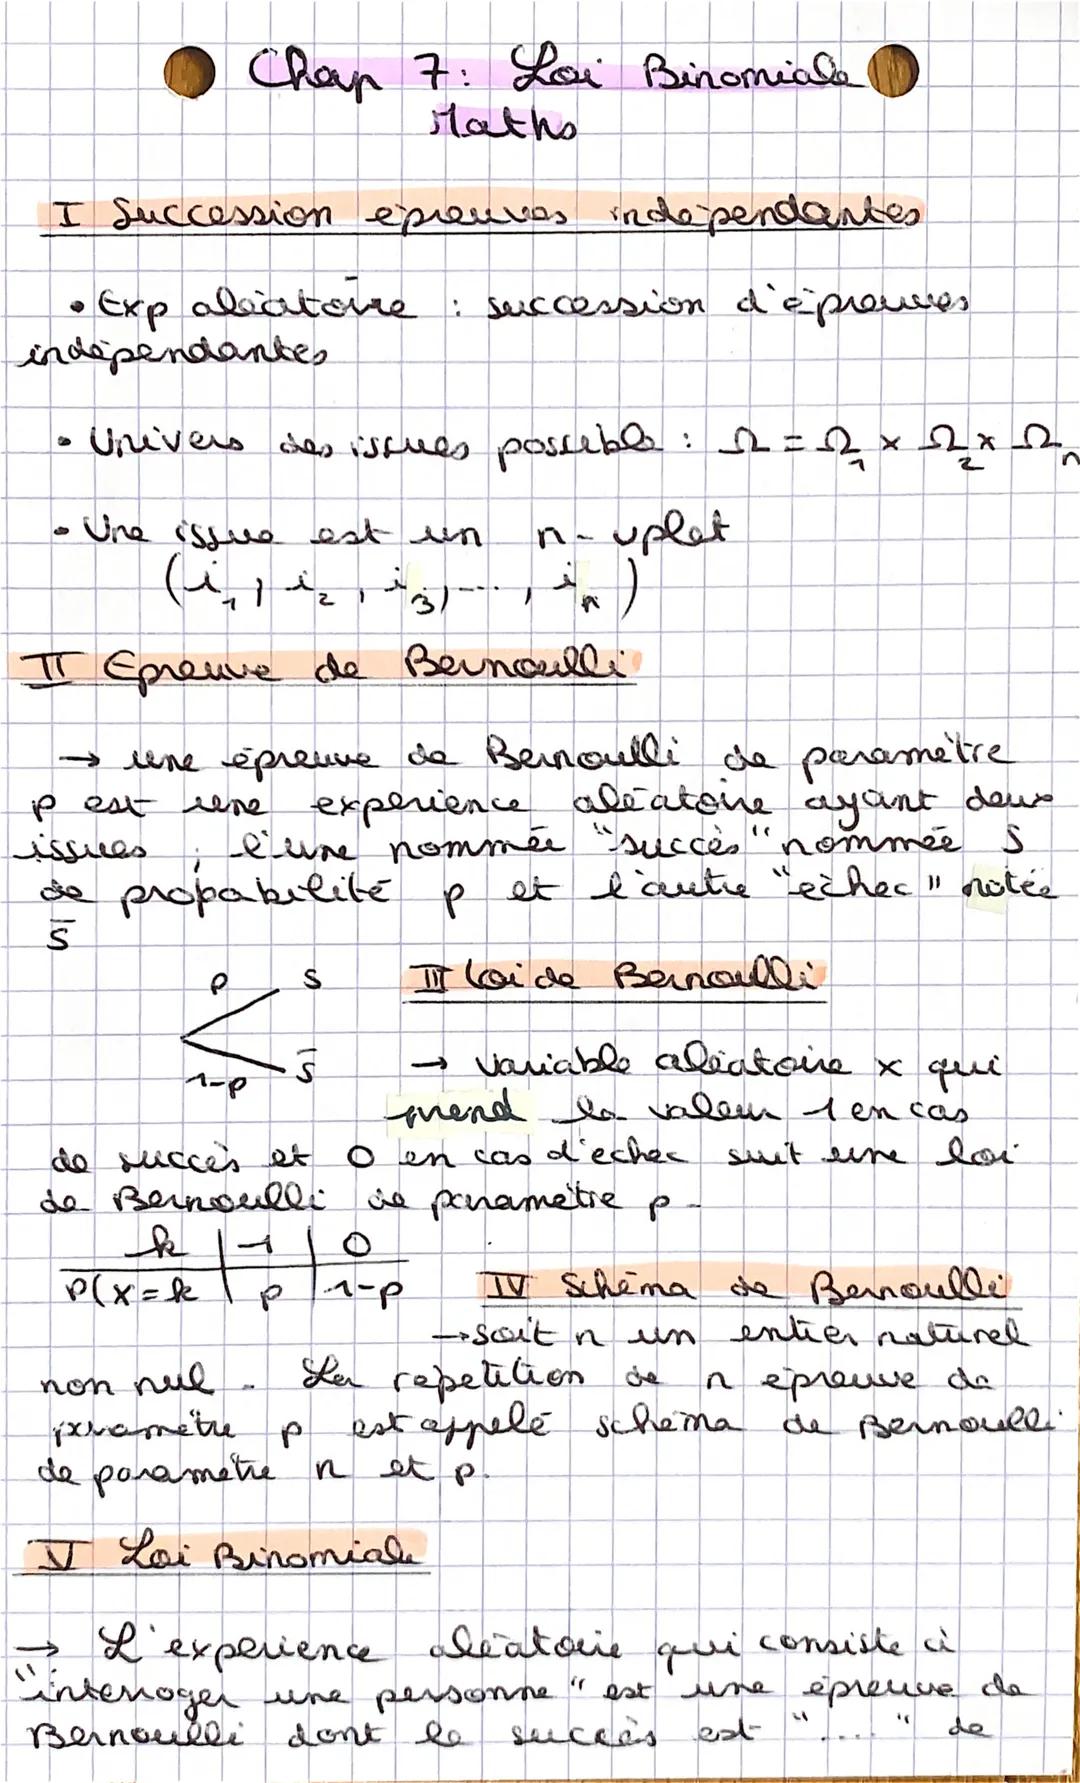 Chap 7: Loi Binomiale
Maths
I Succession épreuves indépendantes
• Exp aléatoire : succession d'épreuves
indépendantes
• Univers des issues possible : Ω = Ω₁ x Ω₂ x Ωₙ
• Une issue est un n-uplet
(i₁, i₂, i₃, ..., iₙ)
II Epreuve de Bernoulli
→ une épreuve de Bernoulli de paramètre
p est une expérience aléatoire ayant deux
issues ; l'une nommée "succès" nommée S
de probabilité p et l'autre "échec" notée
S̅
p S
1-p S̅
III Loi de Bernoulli
→ Variable aléatoire x qui
prend la valeur 1 en cas
de succès et 0 en cas d'échec suit une loi
de Bernoulli de paramètre p.
k | 1 | 0
P(x=k | p | 1-p
IV Schéma de Bernoulli
→ soit n un entier naturel
non nul. La répétition de n épreuve de
paramètre p est appelé schéma de Bernoulli
de paramètre n et p.
V Loi Binomiale
→ L'expérience aléatoire qui consiste à
"interroger une personne" est une épreuve de
Bernoulli dont le succès est "...." de